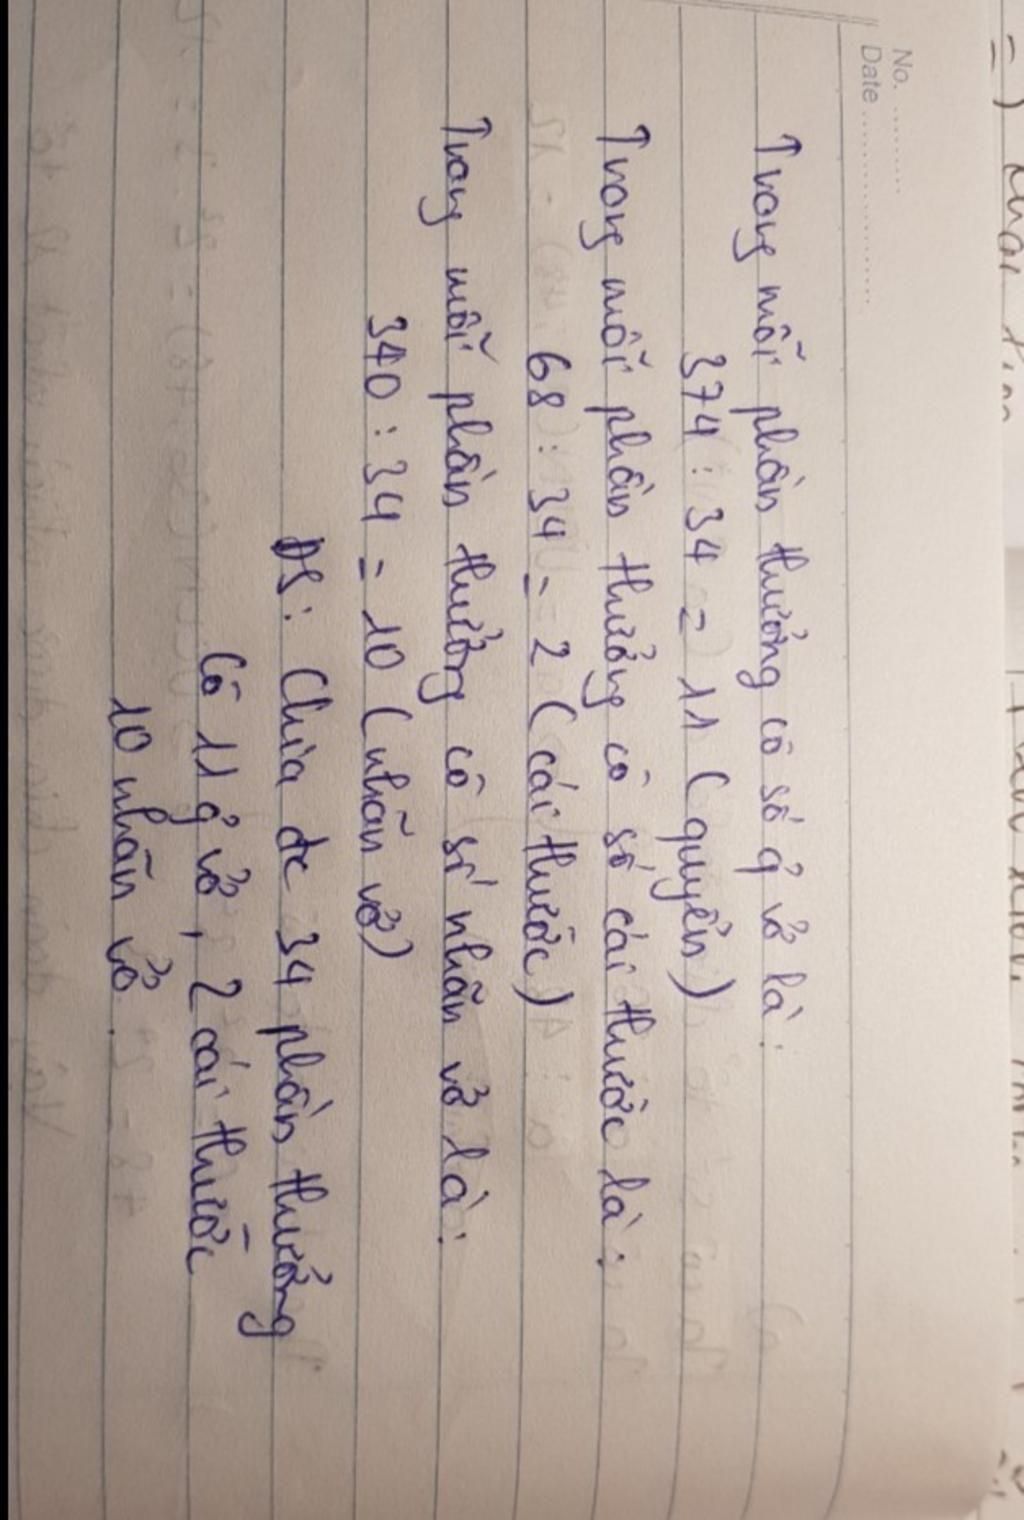 No. ..........
Date ....................
Trong mỗi phần thưởng có số q̉ vở là:
374 : 34 = 11 (quyển)
Trong mỗi phần thưởng có số cái thước là:
68 : 34 = 2 (cái thước)
Trong mỗi phần thưởng có số nhãn vở là:
340 : 34 = 10 (nhãn vở)
ĐS: Chia đc 34 phần thưởng
Có 11 q̉ vở, 2 cái thước
10 nhãn vở.